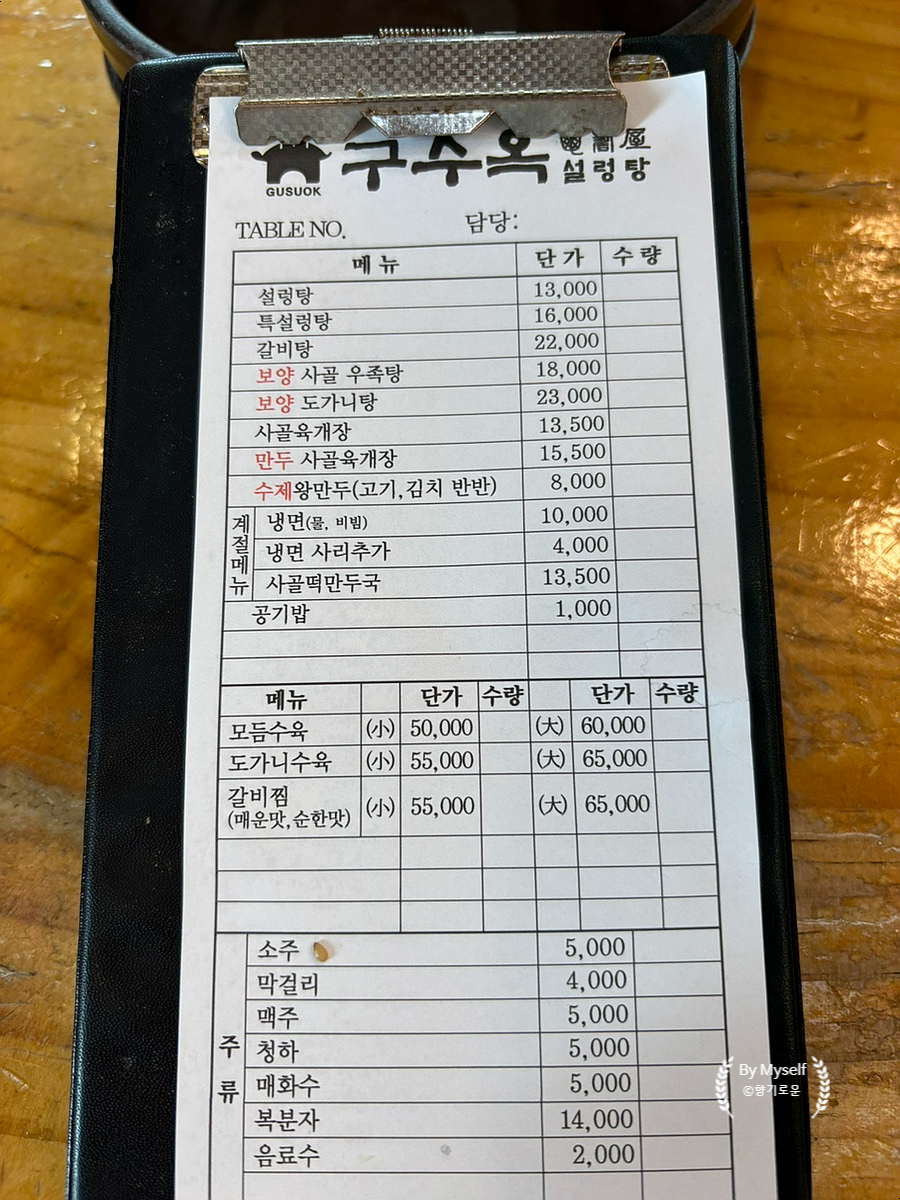 GUSUOK
구수옥
설렁탕
TABLE NO.
담당:
메뉴 단가 수량
설렁탕 13,000
특설렁탕 16,000
갈비탕 22,000
보양 사골 우족탕 18,000
보양 도가니탕 23,000
사골육개장 13,500
만두 사골육개장 15,500
수제왕만두(고기,김치 반반) 8,000
계절메뉴
냉면(물, 비빔) 10,000
냉면 사리추가 4,000
사골떡만두국 13,500
공기밥 1,000
메뉴 단가 수량 단가 수량
모듬수육 (小) 50,000 (大) 60,000
도가니수육 (小) 55,000 (大) 65,000
갈비찜
(매운맛,순한맛) (小) 55,000 (大) 65,000
주류
소주 5,000
막걸리 4,000
맥주 5,000
청하 5,000
매화수 5,000
복분자 14,000
음료수 2,000
By Myself
©향기로운